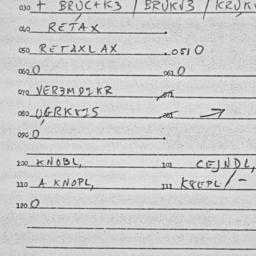 030 + BRUC+K3 / BRUKV3 / KRUK
040 RETAX .
050 RETAXLAX .0510
060 0 061 0
070 VER3MDIKR
080
090 0 .
100 KNOBL, 101 CEJNDL,
110 A KNOPL, 111 KREPL/-
120 0